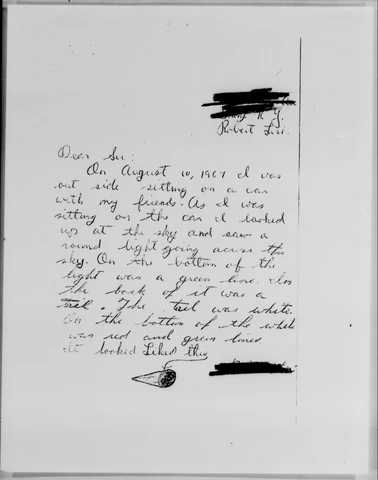 N.Y.
Robert
Dear Sir:
On August 10, 1967 I was
out side sitting on a car
with my friends. As I was
sitting on the car I looked
up at the sky and saw a
round light going across the
sky. On the bottom of the
light was a green line. In
the back of it was a
tail. The tail was white.
On the bottom of the white
was red and green lines
It looked Liked this